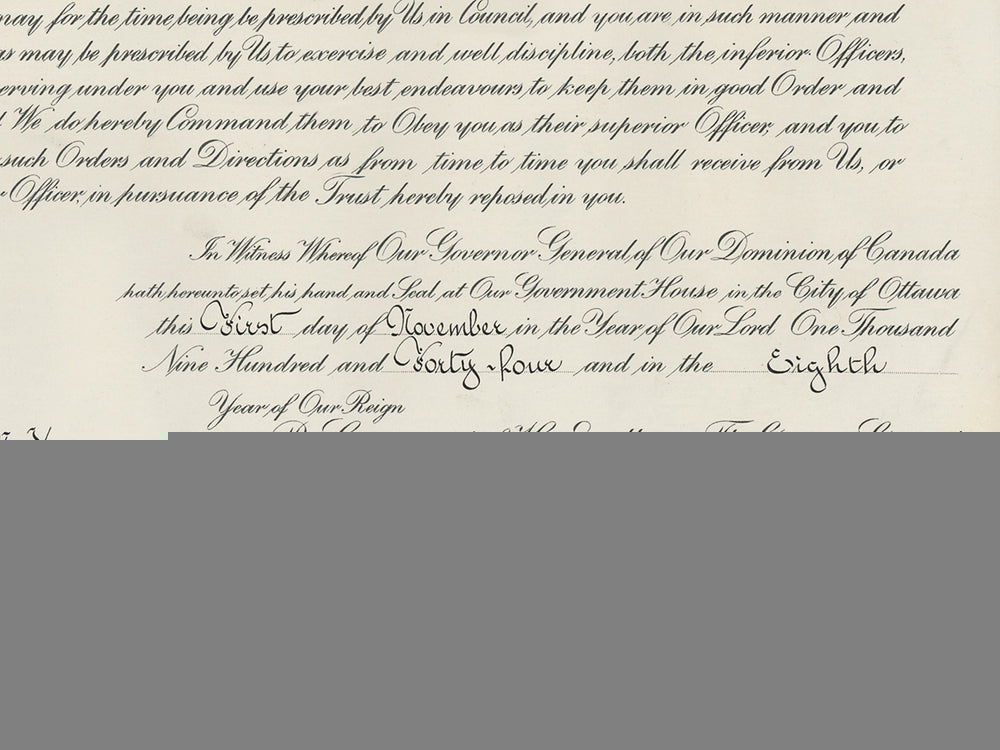 may for the time being be prescribed by Us in Council, and you are in such manner, and
as may be prescribed by Us to exercise and well discipline, both the inferior Officers,
erving under you and use your best endeavours to keep them in good Order and
We do hereby Command them to Obey you as their superior Officer, and you to
such Orders and Directions as from time to time you shall receive from Us, or
Officer, in pursuance of the Trust hereby reposed in you.
In Witness Whereof Our Governor General of Our Dominion of Canada
hath hereunto set his hand and Seal at Our Government House in the City of Ottawa
this First day of November in the Year of Our Lord One Thousand
Nine Hundred and Forty-four and in the Eighth
Year of Our Reign